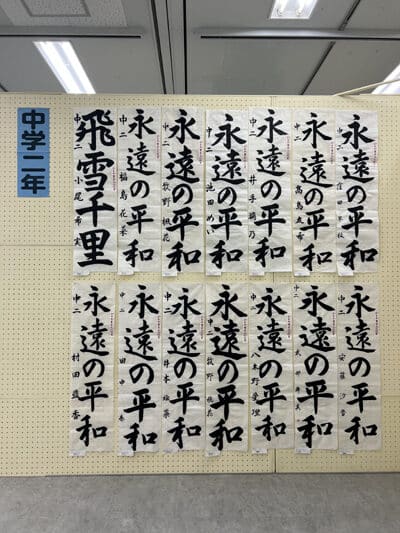 中学二年
飛雪千里
中二
永遠の平和
中二 福島花菜
永遠の平和
中二 牧野楓花
永遠の平和
中二 池田めい
永遠の平和
中二
永遠の平和
中二
永遠の平和
中二
永遠の平和
中二 村田
永遠の平和
中二 田中
永遠の平和
中二
永遠の平和
中二 牧野
永遠の平和
中二
永遠の平和
中二
永遠の平和
中二 安藤汐音